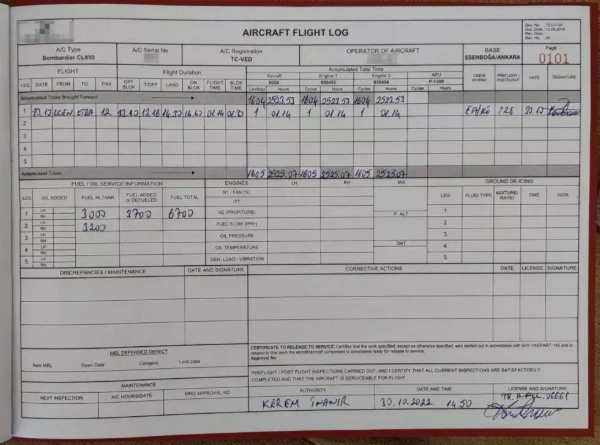 AIRCRAFT FLIGHT LOG
Page
0101
A/C Type
Bombardier CL850
A/C Serial No
A/C Registration
TC-VED
OPERATOR OF AIRCRAFT
BASE
ESENBOĞA/ANKARA
FLIGHT
Flight Duration
Accumulated Total Time
Aircraft Engine 1 Engine 2 APU
LEG DATE FROM TO PAX OFF BLCK T/OFF LAND ON BLCK FLIGHT TIME BLCK TIME Landings Hours Cycles Hours Cycles Hours Cycles Hours DATE SIGNATURE
Accumulated Totals Brought Forward 1604 2523.53 1604 2523.53 1604 2523.53
1 12 13.10 13.16 14.30 01.14 1 01.14 1 01.14 1 01.14
2
3
4
5
Accumulated Totals 1605 2525.07 1605 2525.07 1605 2525.07
FUEL / OIL SERVICE INFORMATION
ENGINES LH RH INS
GROUND DE-ICING
LEG OIL ADDED FUEL IN TANK FUEL ADDED or DEFUELED FUEL TOTAL
N1 / FAN (%)
ITT
LEG FLUID TYPE MIXTURE/ RATIO TIME SIGN.
1 LH RH 3000 3700 6700
P. ALT
1
2 LH RH 3200
FUEL FLOW (PPH)
2
3 LH RH
OIL PRESSURE
3
4 LH RH
OIL TEMPERATURE
OAT
4
5 LH RH
GEN. LOAD / VIBRATION
5
DISCREPANCIES / MAINTENANCE
DATE AND SIGNATURE
CORRECTIVE ACTIONS
DATE LICENSE SIGNATURE
MEL DEFERRED DEFECT
Item MEL Open Date Category Limit Date
CERTIFICATE TO RELEASE TO SERVICE: Certifies that the work specified, except as otherwise specified, was carried out in accordance with SHY 145/PART 145 and in
respect to that work the aircraft/aircraft component is considered ready for release to service.
PREFLIGHT / POST FLIGHT INSPECTIONS CARRIED OUT, AND I CERTIFY THAT ALL CURRENT INSPECTIONS ARE SATISFACTORILY
COMPLETED AND THAT THE AIRCRAFT IS SERVICEABLE FOR FLIGHT
MAINTENANCE
NEXT INSPECTION A/C HOURS/DATE MRO APPROVAL NO
AUTHORITY
DATE AND TIME
LICENSE AND SIGNATURE
KEREM 30.10.2022 14.50